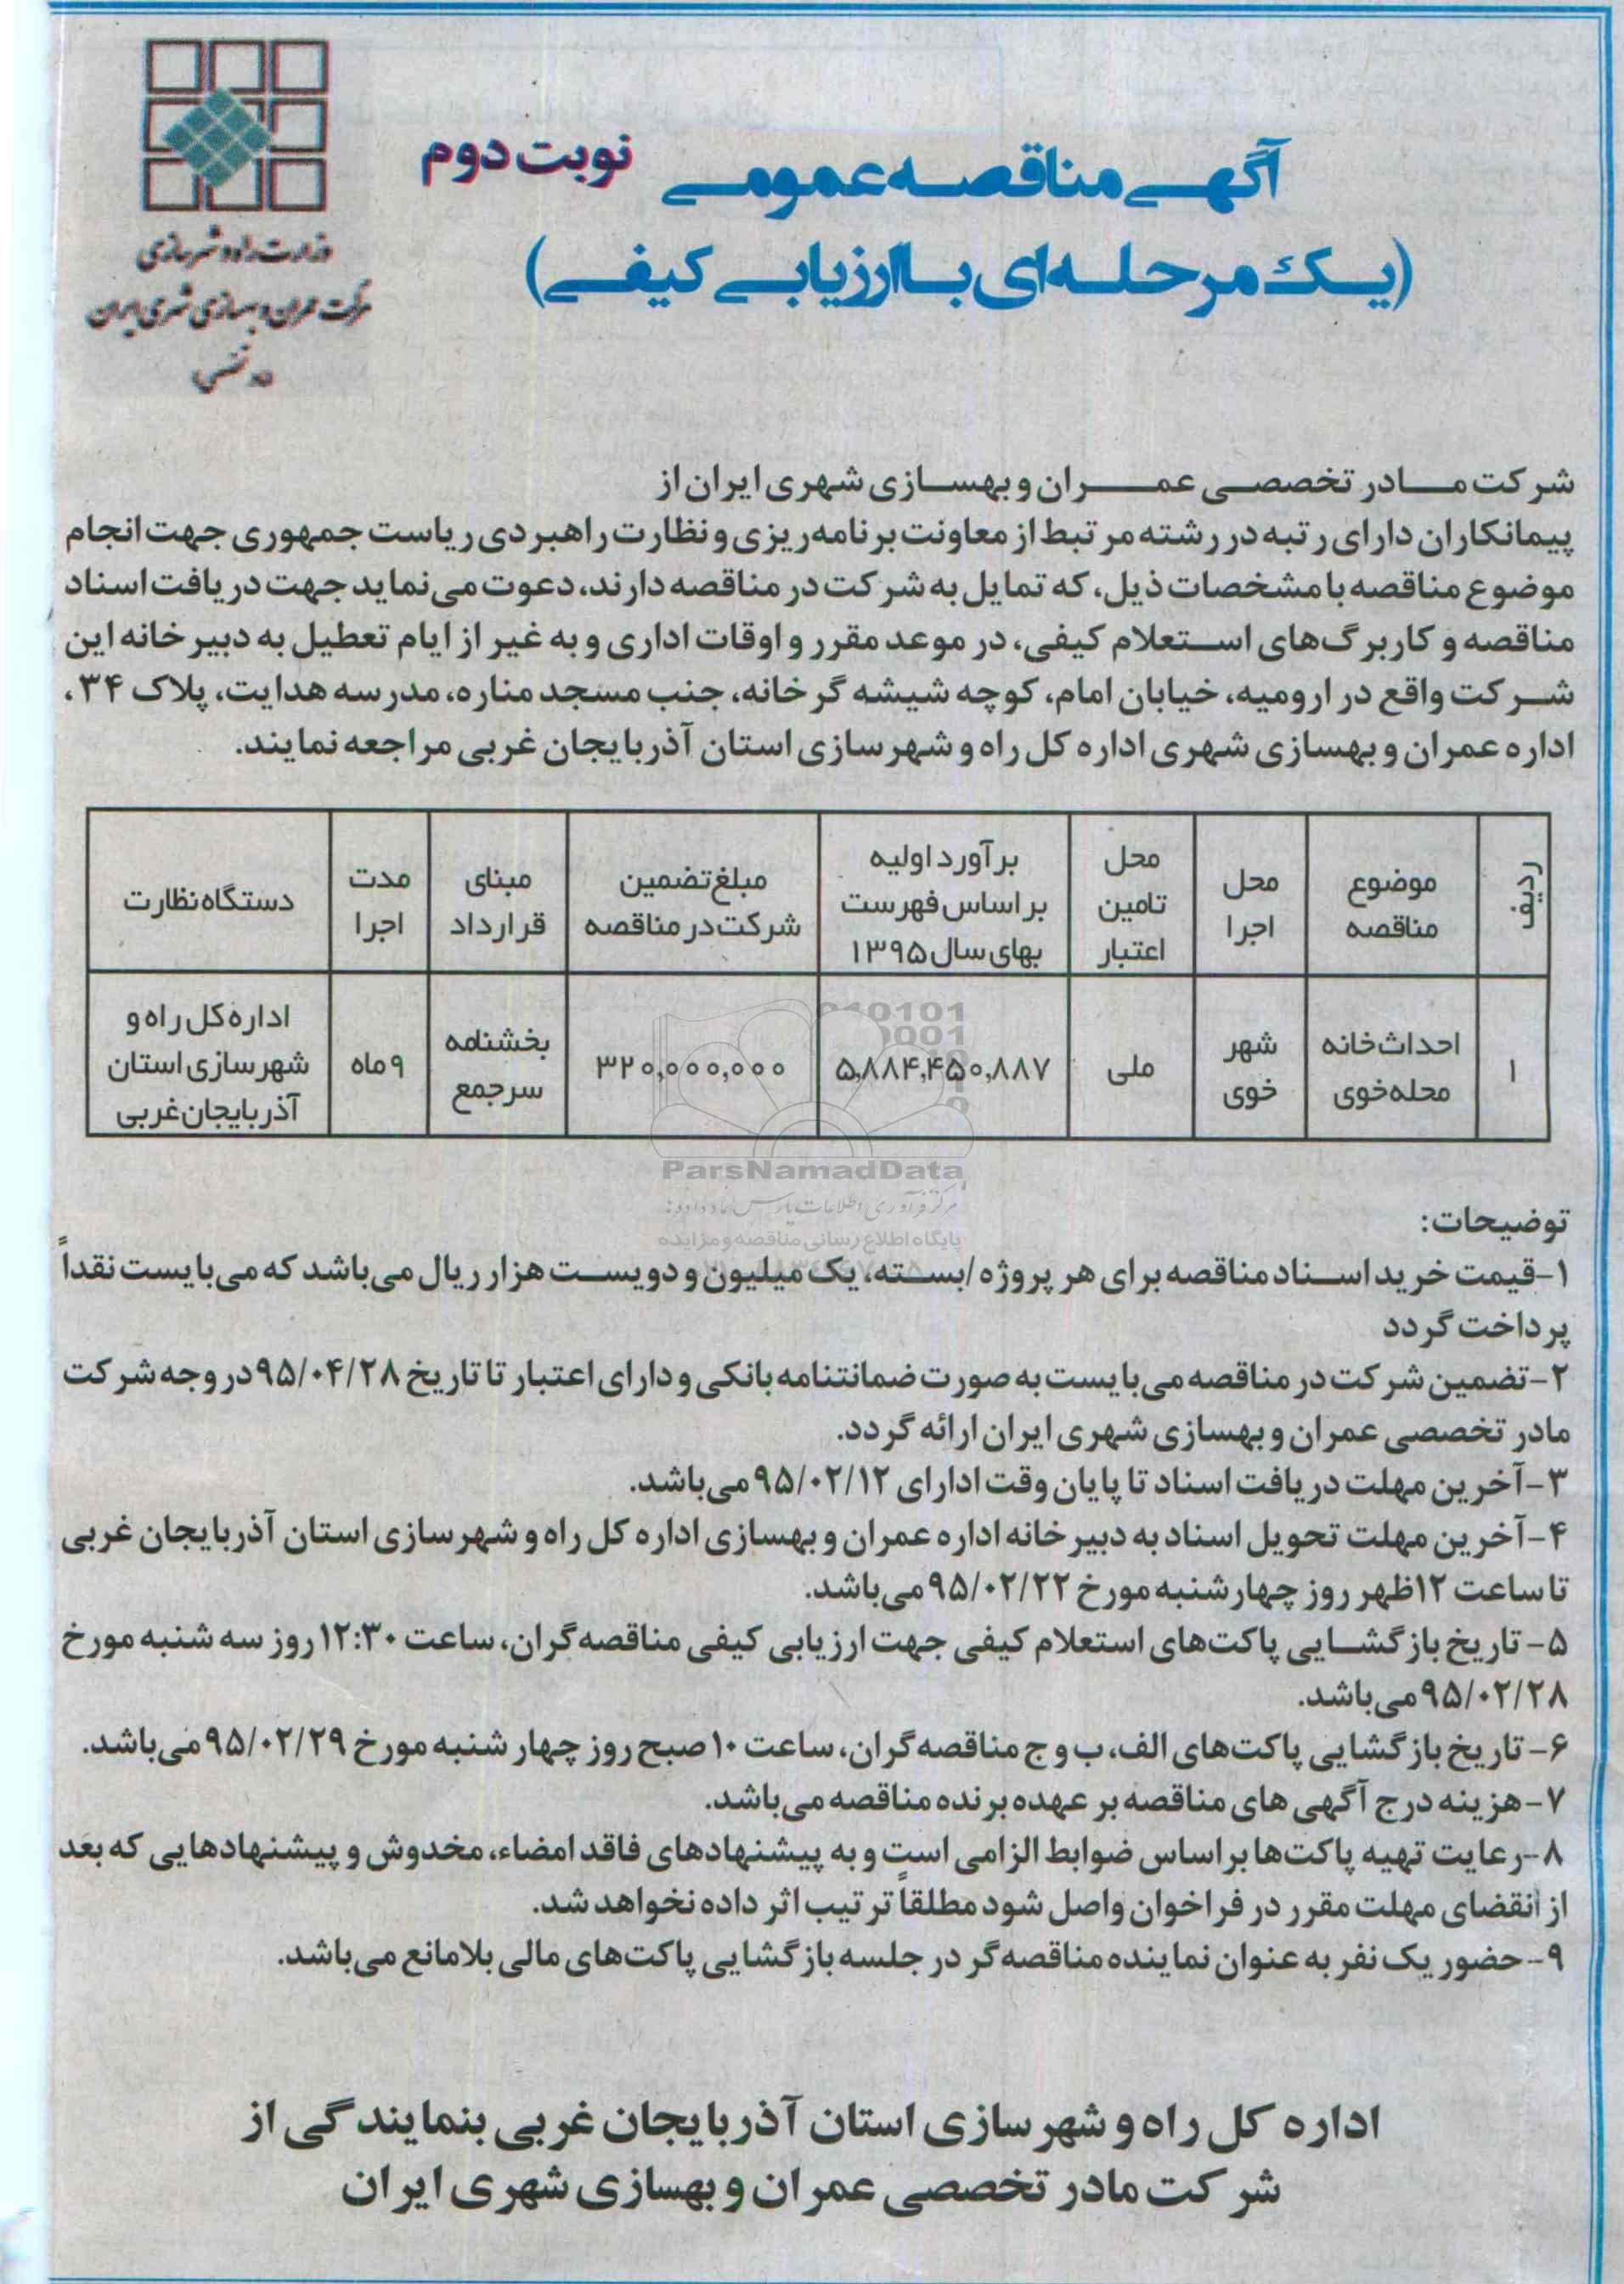 وزارت راه و شهرسازی
شرکت عمران و بهسازی شهری ایران
مادر تخصصی
آگهی مناقصه عمومی نوبت دوم
(یک مرحله‌ای با ارزیابی کیفی)
شرکت مادر تخصصی عمران و بهسازی شهری ایران از
پیمانکاران دارای رتبه در رشته مرتبط از معاونت برنامه‌ریزی و نظارت راهبردی ریاست جمهوری جهت انجام
موضوع مناقصه با مشخصات ذیل، که تمایل به شرکت در مناقصه دارند، دعوت می‌نماید جهت دریافت اسناد
مناقصه و کاربرگ‌های استعلام کیفی، در موعد مقرر و اوقات اداری و به غیر از ایام تعطیل به دبیرخانه این
شرکت واقع در ارومیه، خیابان امام، کوچه شیشه گرخانه، جنب مسجد مناره، مدرسه هدایت، پلاک ۳۴،
اداره عمران و بهسازی شهری اداره کل راه و شهرسازی استان آذربایجان غربی مراجعه نمایند.
ردیف
موضوع
مناقصه
محل
اجرا
محل
تامین
اعتبار
برآورد اولیه
بر اساس فهرست
بهای سال ۱۳۹۵
مبلغ تضمین
شرکت در مناقصه
مبنای
قرارداد
مدت
اجرا
دستگاه نظارت
۱
احداث خانه
محله خوی
شهر
خوی
ملی
۵,۸۸۴,۴۵۰,۸۸۷
۳۲۰,۰۰۰,۰۰۰
بخشنامه
سرجمع
۹ ماه
اداره کل راه و
شهرسازی استان
آذربایجان غربی
ParsNamadData
مرکز فرآوری اطلاعات پارس نماد داده‌ها
پایگاه اطلاع رسانی مناقصه و مزایده
توضیحات:
۱-قیمت خرید اسناد مناقصه برای هر پروژه/بسته، یک میلیون و دویست هزار ریال می‌باشد که می‌بایست نقداً
پرداخت گردد
۲-تضمین شرکت در مناقصه می‌بایست به صورت ضمانتنامه بانکی و دارای اعتبار تا تاریخ ۹۵/۰۴/۲۸ در وجه شرکت
مادر تخصصی عمران و بهسازی شهری ایران ارائه گردد.
۳-آخرین مهلت دریافت اسناد تا پایان وقت ادارای ۹۵/۰۲/۱۲ می‌باشد.
۴-آخرین مهلت تحویل اسناد به دبیرخانه اداره عمران و بهسازی اداره کل راه و شهرسازی استان آذربایجان غربی
تا ساعت ۱۲ ظهر روز چهارشنبه مورخ ۹۵/۰۲/۲۲ می‌باشد.
۵- تاریخ بازگشایی پاکت‌های استعلام کیفی جهت ارزیابی کیفی مناقصه‌گران، ساعت ۱۲:۳۰ روز سه شنبه مورخ
۹۵/۰۲/۲۸ می‌باشد.
۶- تاریخ بازگشایی پاکت‌های الف، ب و ج مناقصه‌گران، ساعت ۱۰ صبح روز چهار شنبه مورخ ۹۵/۰۲/۲۹ می‌باشد.
۷-هزینه درج آگهی های مناقصه بر عهده برنده مناقصه می‌باشد.
۸-رعایت تهیه پاکت‌ها بر اساس ضوابط الزامی است و به پیشنهادهای فاقد امضاء، مخدوش و پیشنهادهایی که بعد
از انقضای مهلت مقرر در فراخوان واصل شود مطلقاً ترتیب اثر داده نخواهد شد.
۹-حضور یک نفر به عنوان نماینده مناقصه‌گر در جلسه بازگشایی پاکت‌های مالی بلامانع می‌باشد.
اداره کل راه و شهرسازی استان آذربایجان غربی بنمایندگی از
شرکت مادر تخصصی عمران و بهسازی شهری ایران